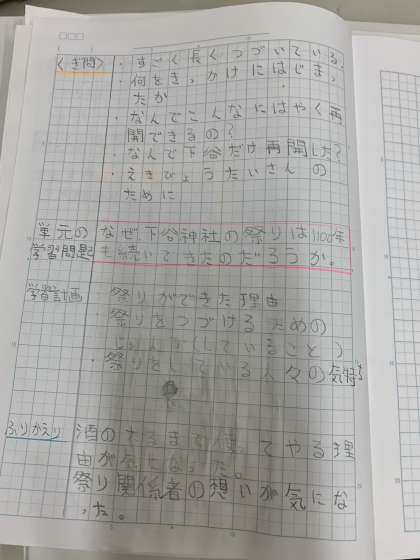 ・すごく長くつづいている。
〈ぎ問〉・何をきっかけにはじまっ
たか
・なんでこんなにはやく再
開できるの?
・なんで下谷だけ再開した?
・えきびょうたいさんの
ために
単元の学習問題 なぜ、下谷神社の祭りは1100年
も続いてきたのだろうか。
学習計画 ・祭りができた理由
・祭りをつづけるための
(している こと)
・祭りをしている人々の気持ち
ふりかえり 酒の てやる理
由が気になった。
祭り関係者の想いが気にな
った。